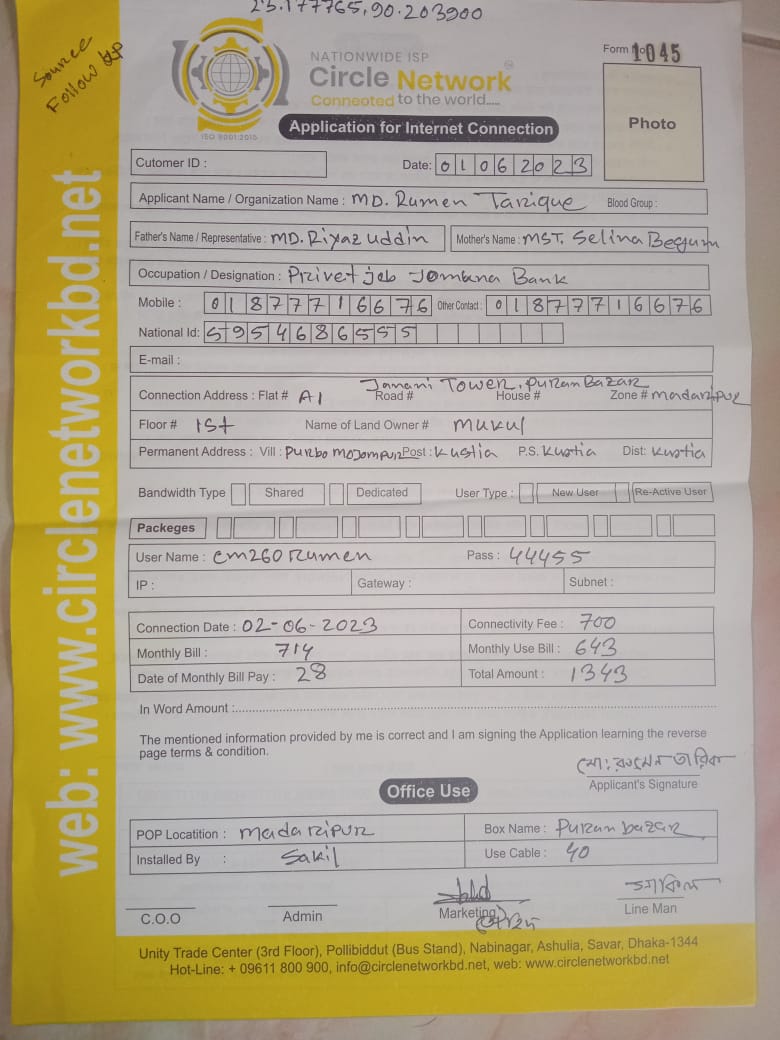 23.177765,90.203900
Source
Follow UP
NATIONWIDE ISP
Circle Network
Connected to the world.....
ISO 9001:2015
Form No 1045
Photo
Application for Internet Connection
Cutomer ID :
Date: 01062023
Applicant Name / Organization Name : MD. Rumen Tarique Blood Group :
Father's Name / Representative : MD. Riyaz uddin Mother's Name : MST. Selina Begum
Occupation / Designation : Privet job Jomuna Bank
Mobile : 01877716676 Other Contact : 01877716676
National Id: 5954686555
E-mail :
Connection Address : Flat # A1 Road # House # Zone # madaripur
Jamani Tower, Puran Bazar
Floor # 1st Name of Land Owner # mukul
Permanent Address : Vill : Purbo mojompur Post : Kustia P.S. Kustia Dist: Kustia
Bandwidth Type Shared Dedicated User Type : New User Re-Active User
Packeges
User Name : cm260rumen Pass : 44455
IP : Gateway : Subnet :
Connection Date : 02-06-2023 Connectivity Fee : 700
Monthly Bill : 714 Monthly Use Bill : 643
Date of Monthly Bill Pay : 28 Total Amount : 1343
In Word Amount :
The mentioned information provided by me is correct and I am signing the Application learning the reverse
page terms & condition.
মোঃ রুমেন তারিক
Applicant's Signature
Office Use
POP Locatition : madaripur Box Name : Puran bazar
Installed By : Sakil Use Cable : 40
C.O.O Admin Marketing Line Man
Unity Trade Center (3rd Floor), Pollibiddut (Bus Stand), Nabinagar, Ashulia, Savar, Dhaka-1344
Hot-Line: + 09611 800 900, info@circlenetworkbd.net, web: www.circlenetworkbd.net
web: www.circlenetworkbd.net